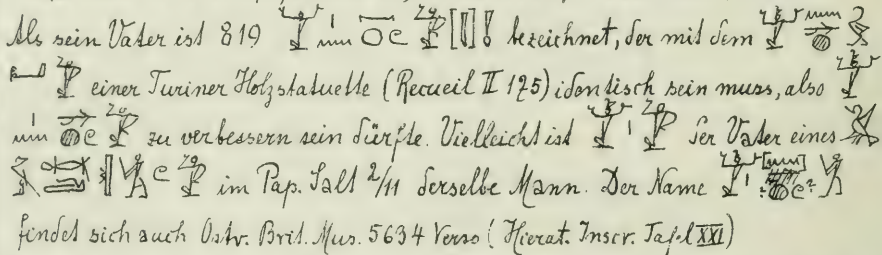 Als sein Vater ist 819 bezeichnet, der mit dem
einer Turiner Holzstatuette (Recueil II 175) identisch sein muss, also
zu verbessern sein dürfte. Vielleicht ist der Vater eines
im Pap. Salt 2/11 derselbe Mann. Der Name
findet sich auch Ostr. Brit. Mus. 5634 Verso (Hierat. Inscr. Tafel XXI)